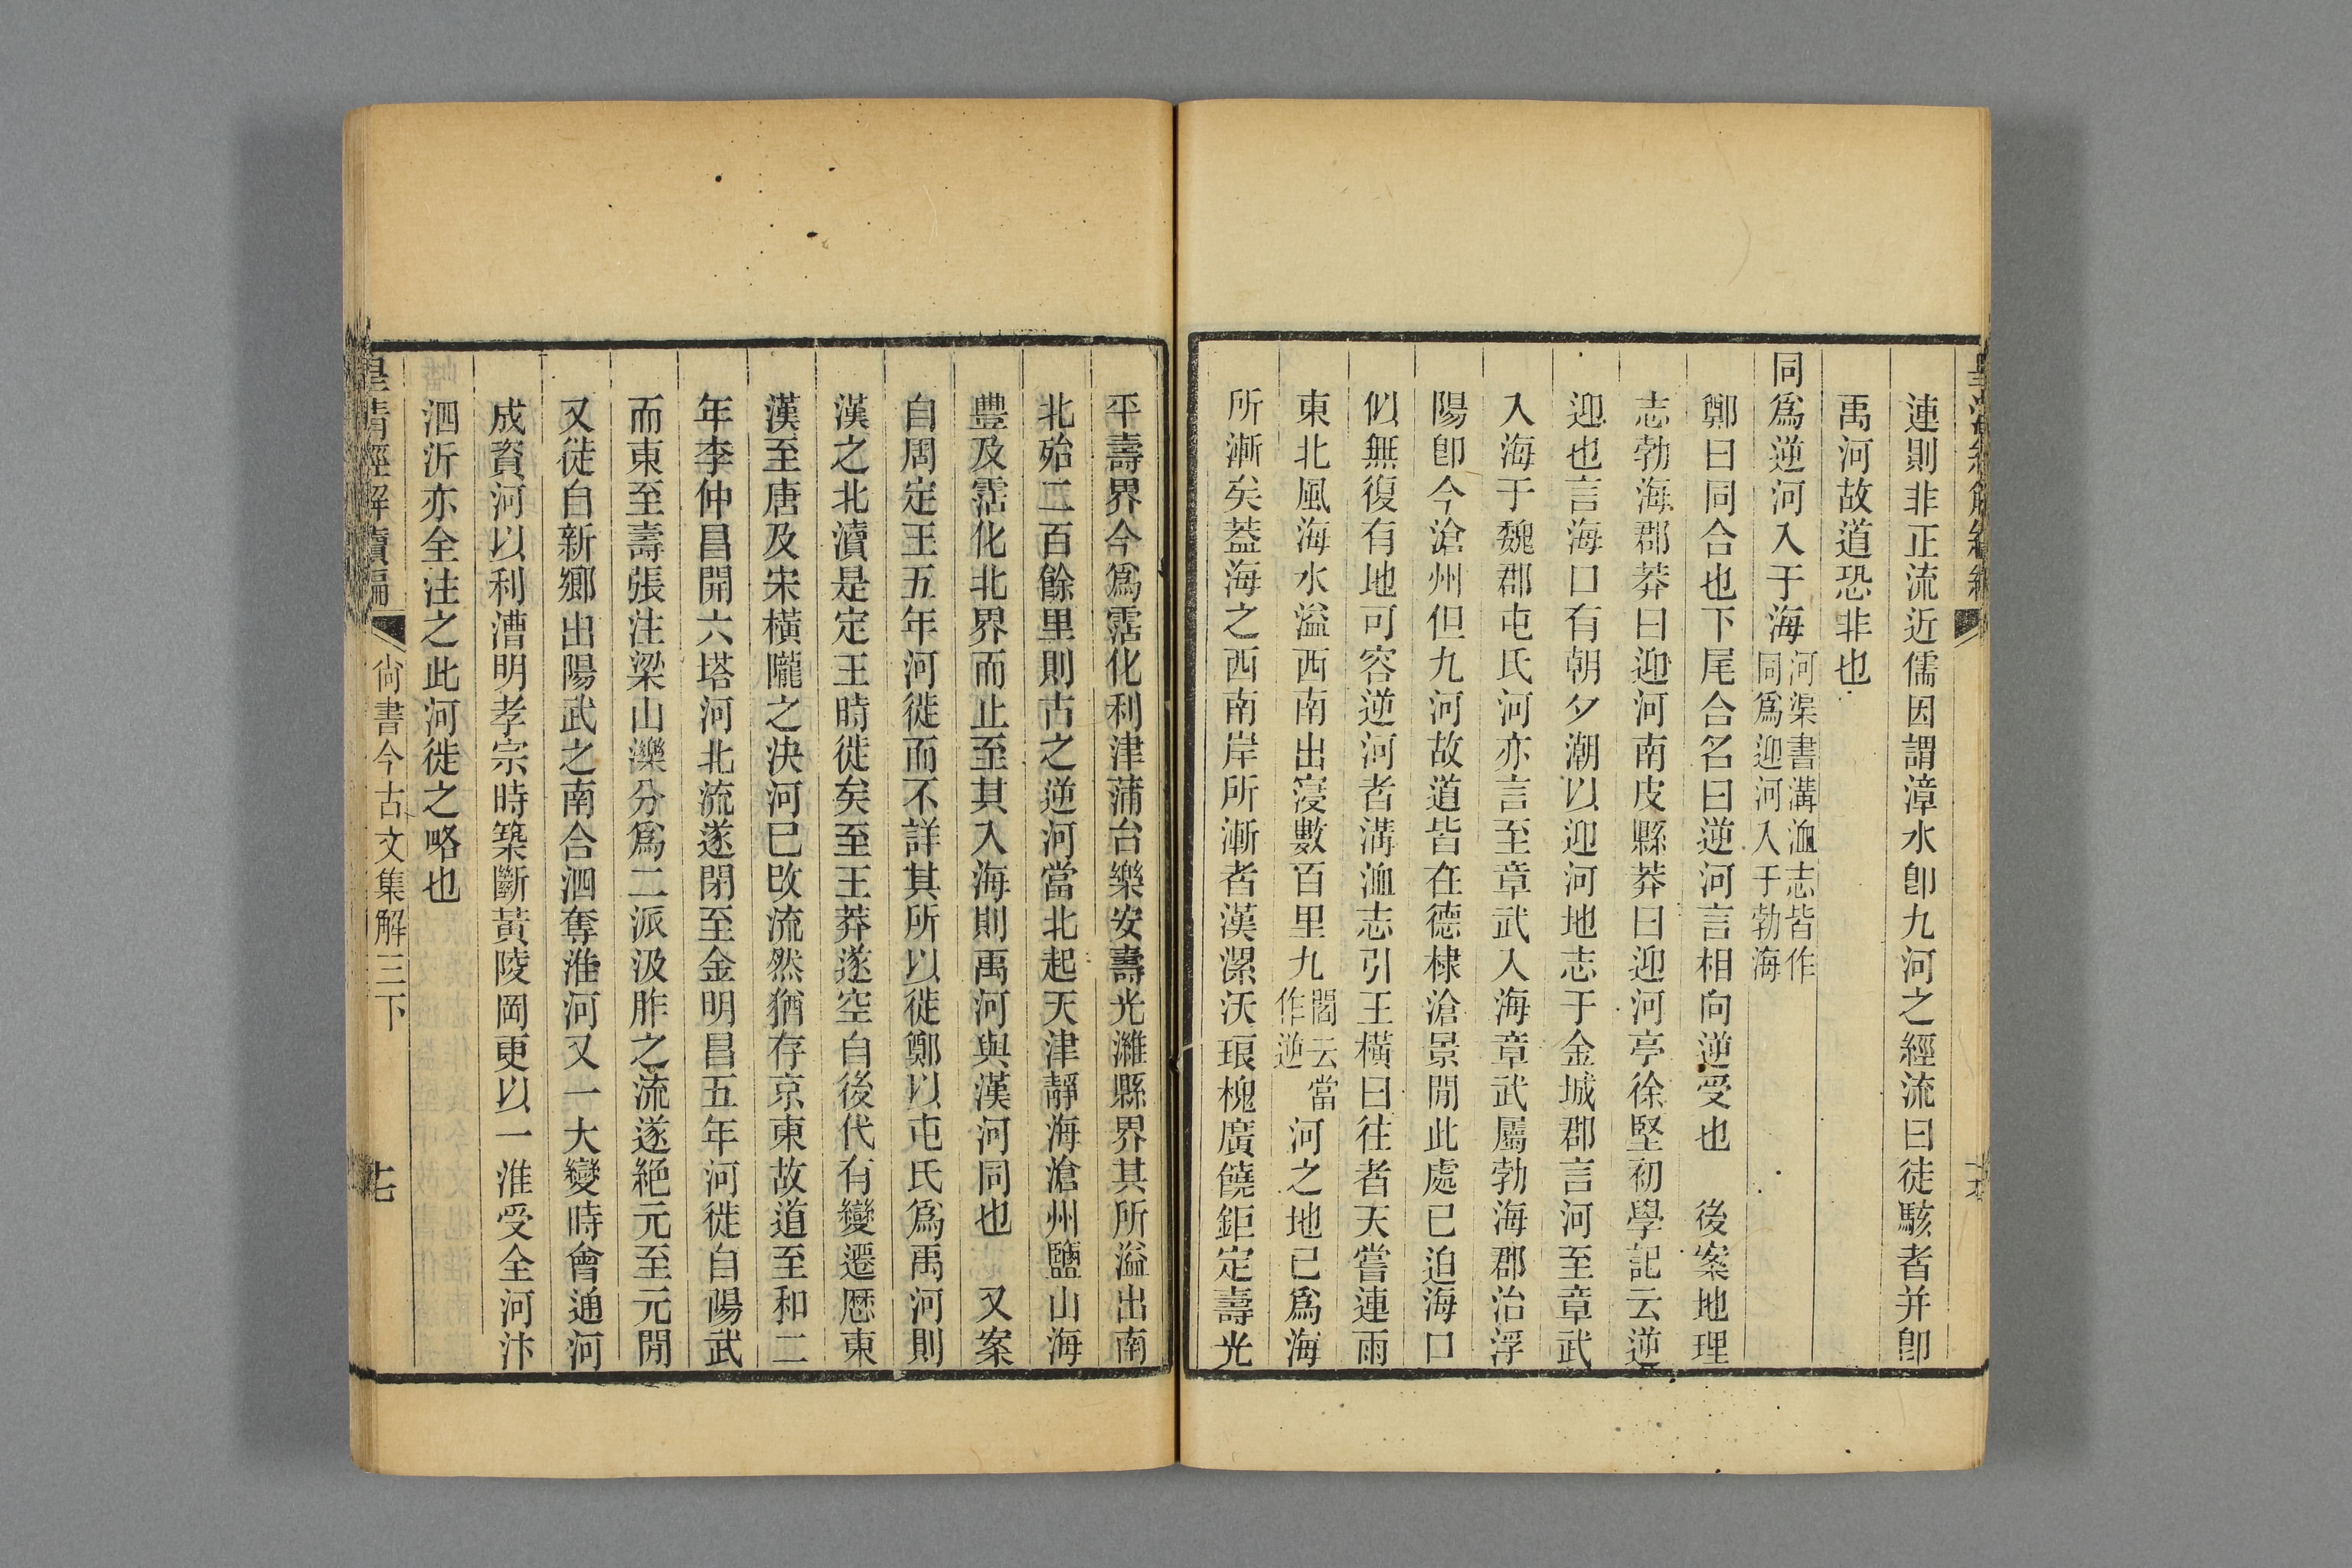 連則非正流近儒因謂漳水卽九河之經流曰徒駭者并卽
禹河故道恐非也
同爲逆河入于海河渠書溝洫志皆作同爲迎河入于勃海
鄭曰同合也下尾合名曰逆河言相向逆受也　後案地理
志勃海郡莽曰迎河南皮縣莽曰迎河亭徐堅初學記云逆
迎也言海口有朝夕潮以迎河地志于金城郡言河至章武
入海于魏郡屯氏河亦言至章武入海章武屬勃海郡治浮
陽卽今滄州但九河故道皆在德棣滄景閒此處已迫海口
似無復有地可容逆河者溝洫志引王橫曰往者天嘗連雨
東北風海水溢西南出寖數百里九閻云當作逆河之地已爲海
所漸矣葢海之西南岸所漸者漢漯沃琅槐廣饒鉅定壽光
平壽界今爲霑化利津蒲台樂安壽光濰縣界其所溢出南
北殆二百餘里則古之逆河當北起天津靜海滄州鹽山海
豐及霑化北界而止至其入海則禹河與漢河同也　又案
自周定王五年河徙而不詳其所以徙鄭以屯氏爲禹河則
漢之北瀆是定王時徙矣至王莽遂空自後代有變遷歷東
漢至唐及宋橫隴之決河已改流然猶存京東故道至和二
年李仲昌開六塔河北流遂閉至金明昌五年河徙自陽武
而東至壽張注梁山濼分爲二派汲胙之流遂絕元至元閒
又徙自新鄉出陽武之南合泗奪淮河又一大變時會通河
成資河以利漕明孝宗時築斷黃陵岡更以一淮受全河汴
泗沂亦全注之此河徙之略也
皇清經解續編　尙書今古文集解三下　十七